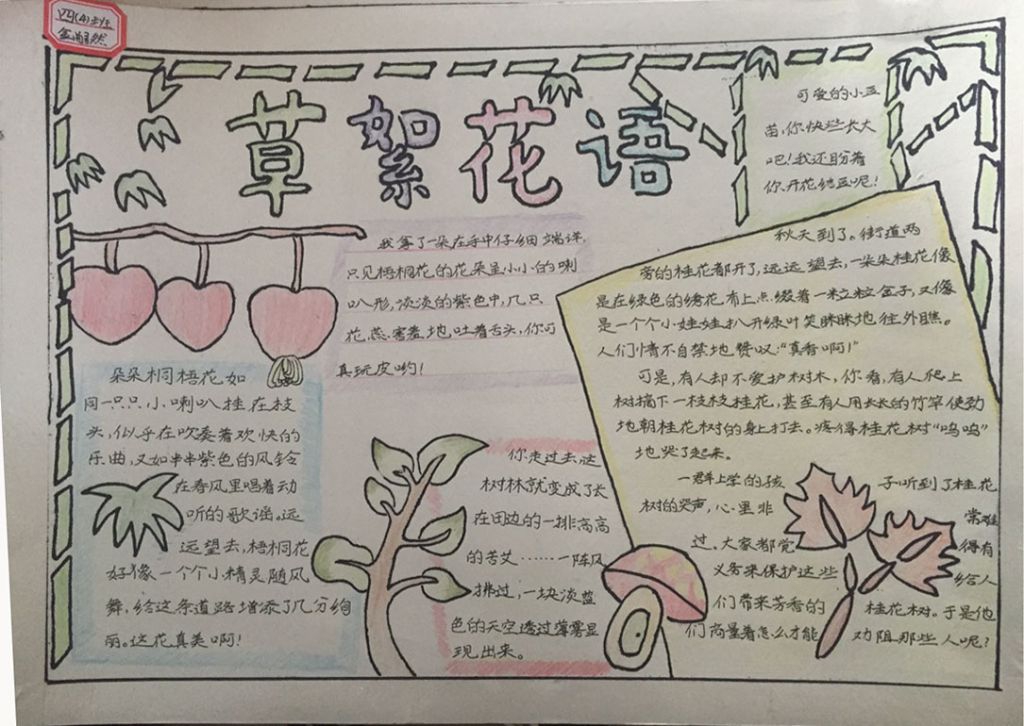 四(4)班
草絮花语
可爱的小豆
苗,你快些长大
吧!我还盼着
你开花结豆呢!
我拿了一朵在手中仔细端详,
只见梧桐花的花朵呈小小的喇
叭形,淡淡的紫色中,几只
花蕊害羞地吐着舌头,你可
真玩皮哟!
朵朵桐梧花如
同一只只小喇叭挂在枝
头,似乎在吹奏着欢快的
乐曲,又如串串紫色的风铃
在春风里唱着动
听的歌谣。远
远望去,梧桐花
好像一个个小精灵随风
舞,给这条道路增添了几分绚
丽。这花真美啊!
你走过去,这
树林就变成了长
在田边的一排高高
的苦艾……一阵风
拂过,一块淡蓝
色的天空透过薄雾显
现出来。
秋天到了。街道两
旁的桂花都开了,远远望去,一朵朵桂花像
是在绿色的绣花布上点缀着一粒粒金子,又像
是一个个小娃娃扒开绿叶笑眯眯地往外瞧。
人们情不自禁地赞叹:“真香啊!”
可是,有人却不爱护树木,你看,有人爬上
树摘下一枝枝桂花,甚至有人用长长的竹竿使劲
地朝桂花树的身上打去。疼得桂花树“呜呜”
地哭了起来。
一群上学的孩子听到了桂花
树的哭声,心里非常难
过,大家都觉得有
义务来保护这些给人
们带来芳香的桂花树。于是他
们商量着怎么才能劝阻那些人呢?